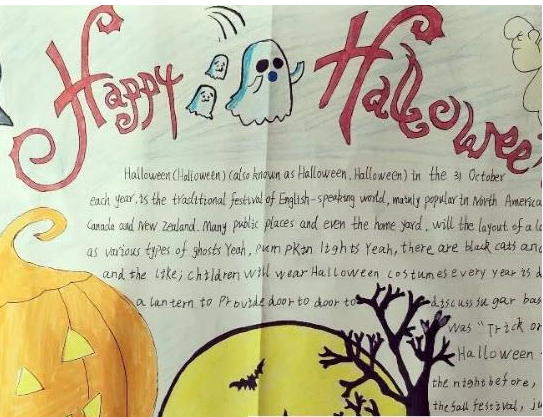 Happy Halloween
Halloween (Halloween) (also known as Halloween, Halloween) in the 31 October
each year, is the traditional festival of English-speaking world, mainly popular in North America
Canada and New Zealand. Many public places and even the home yard, will the layout of a
as various types of ghosts Yeah, pumpkin lights Yeah, there are black cats and
and the like; Children will wear Halloween costumes every year is
a lantern to Provide door to door to discuss sugar
was "Trick or
Halloween
the night before,
the fall festival,